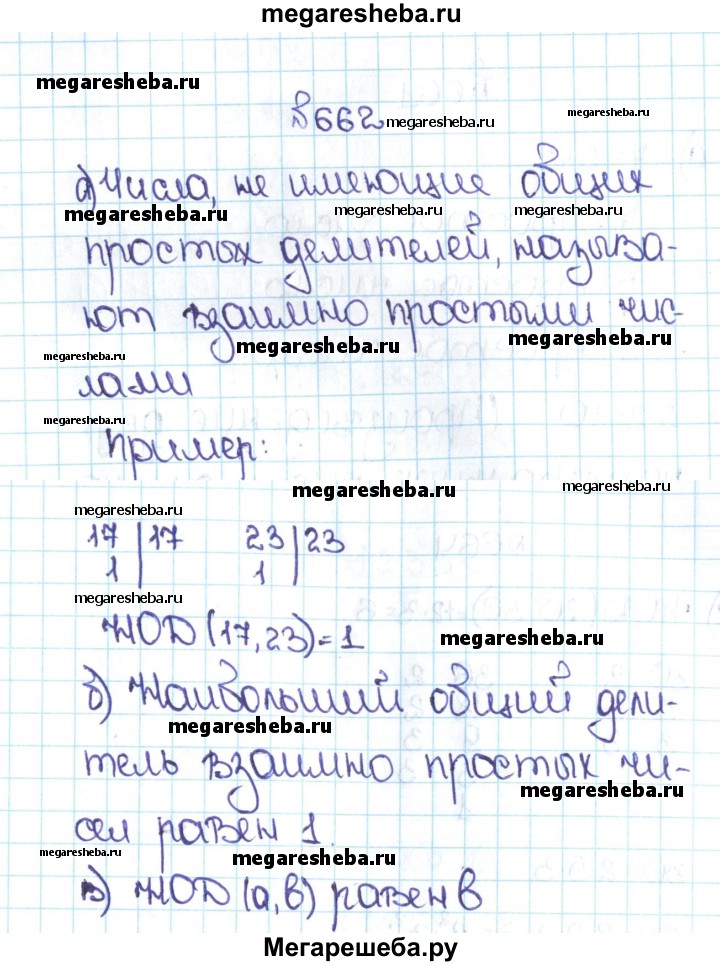 megaresheba.ru
megaresheba.ru
№662 megaresheba.ru megaresheba.ru
а) Числа, не имеющие общих
megaresheba.ru megaresheba.ru megaresheba.ru
простых делителей, называ-
ют взаимно простыми чис-
megaresheba.ru megaresheba.ru megaresheba.ru
лами
megaresheba.ru
Пример:
megaresheba.ru megaresheba.ru
megaresheba.ru
17 | 17 23 | 23
1 | 1 |
megaresheba.ru
НОД (17,23)=1 megaresheba.ru
б) Наибольший общий дели-
megaresheba.ru
тель взаимно простых чи-
megaresheba.ru
сел равен 1.
megaresheba.ru megaresheba.ru
в) НОД (а,в) равен в
Мегарешеба.ру